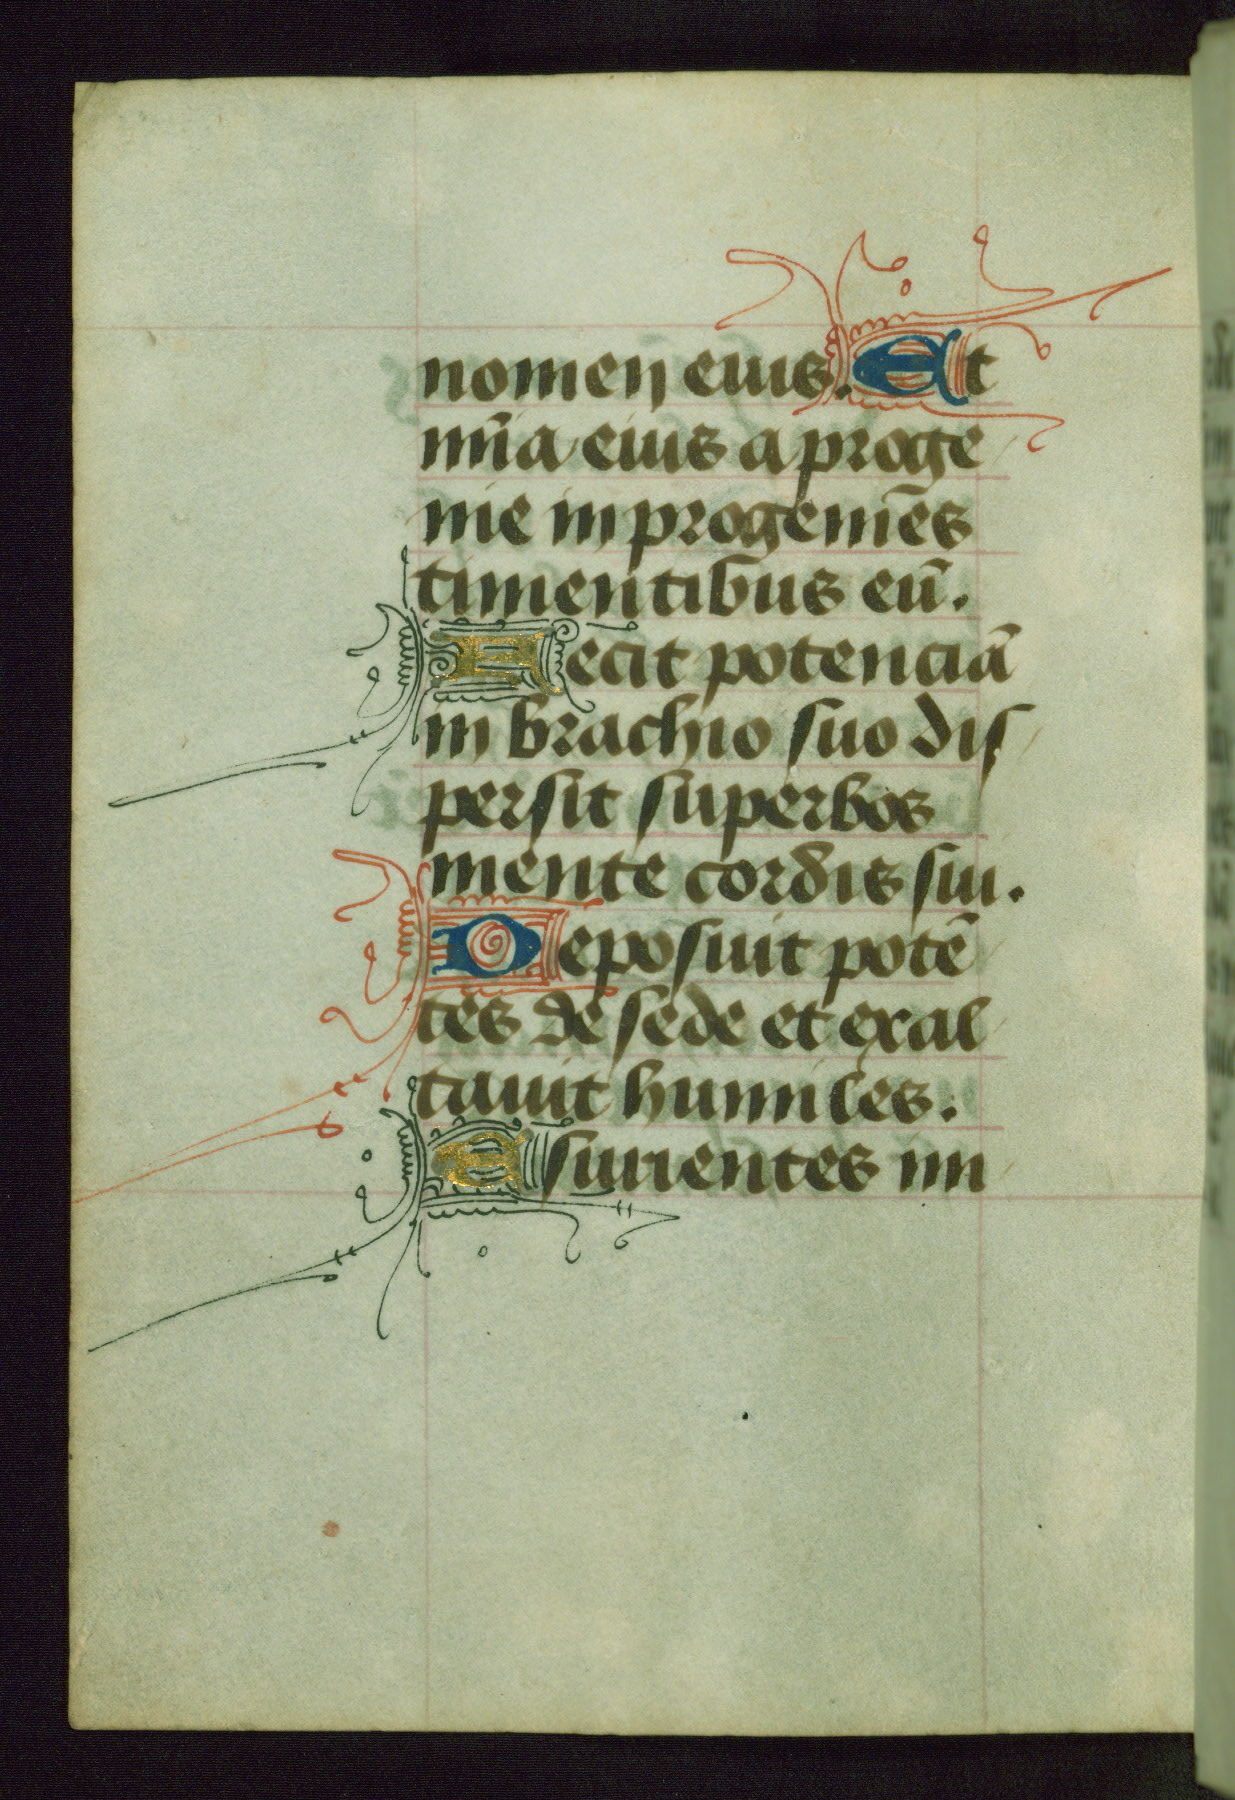 nomen eius. Et
mīa eius a proge
nie in progenies
timentibus eū.
Fecit potenciā
in brachio suo dis
persit superbos
mente cordis sui.
Deposuit potē
tes de sede et exal
tauit humiles.
Esurientes im